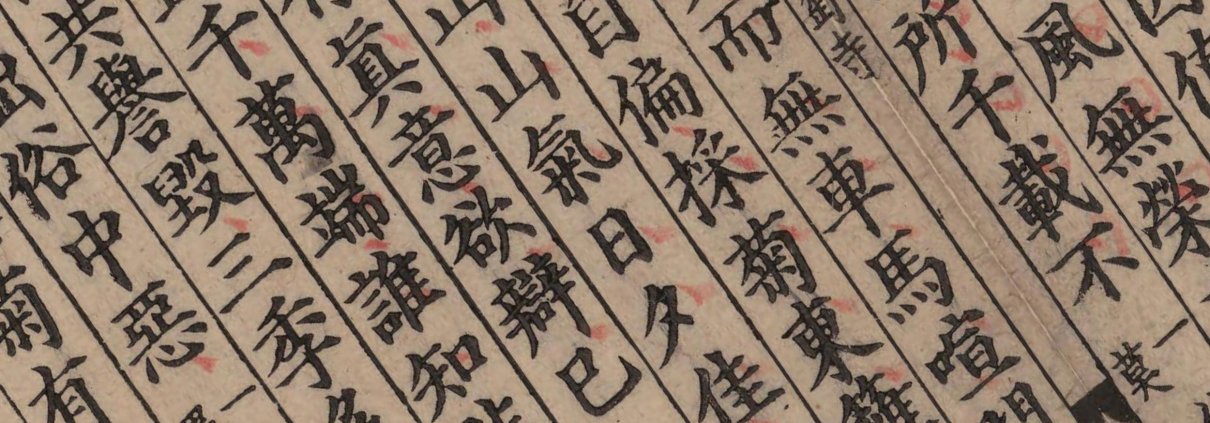 風無榮
所千載不一莫
而無車馬喧
自偏採菊東籬
山山氣日夕佳
真意欲辯已
千萬端誰知
共譽毀三季多
俗中惡一
菊有